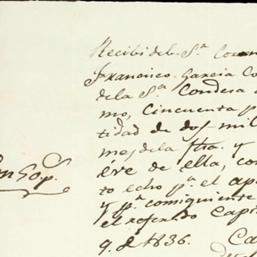 Recibi de la S.ª Coun
Francisco Garcia Co
de la S.ª Condesa
mo, Cincuenta p
tidad de dos mil
mes de la fha. y
éve de ella, con
to echo p.ª el ap
y p.ª consiguiente
el referido Capi
9. de 1836. Ca
on Gop.